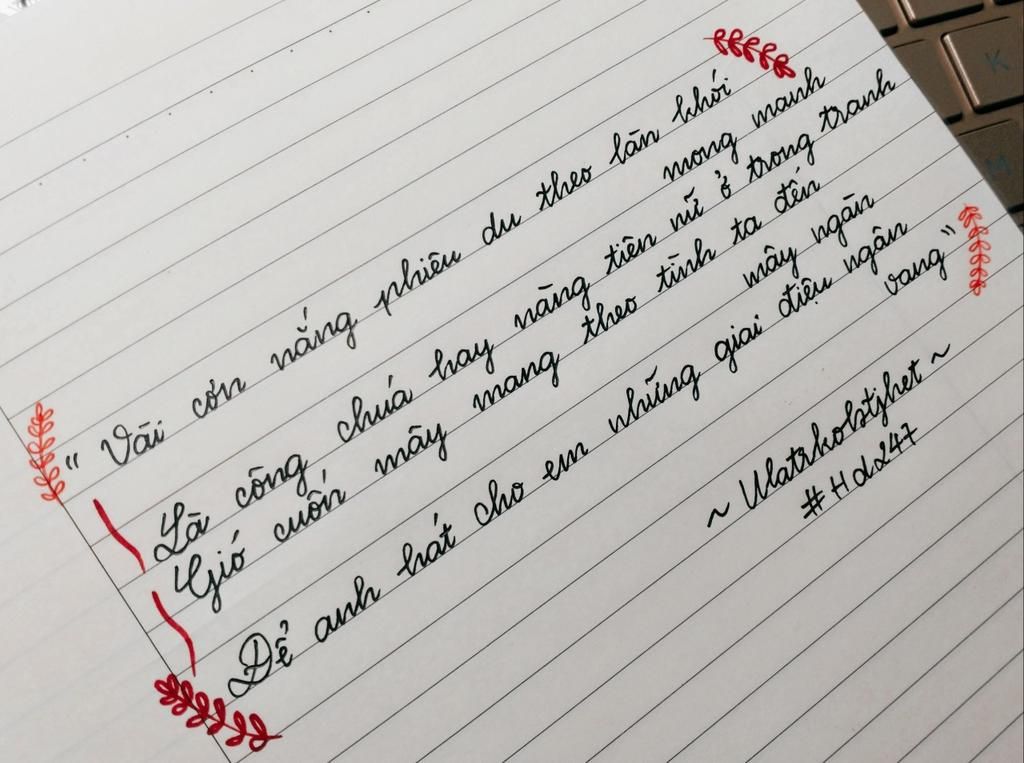 " Vài cơn nắng phiêu du theo làn khói
mong manh
Là công chúa hay nàng tiên nữ ở trong tranh
Gió cuốn mây mang theo tình ta đến
mây ngàn
Để anh hát cho em những giai điệu ngân
vang "
~ Ulatrkobtjhet ~
#Hd247
K
M